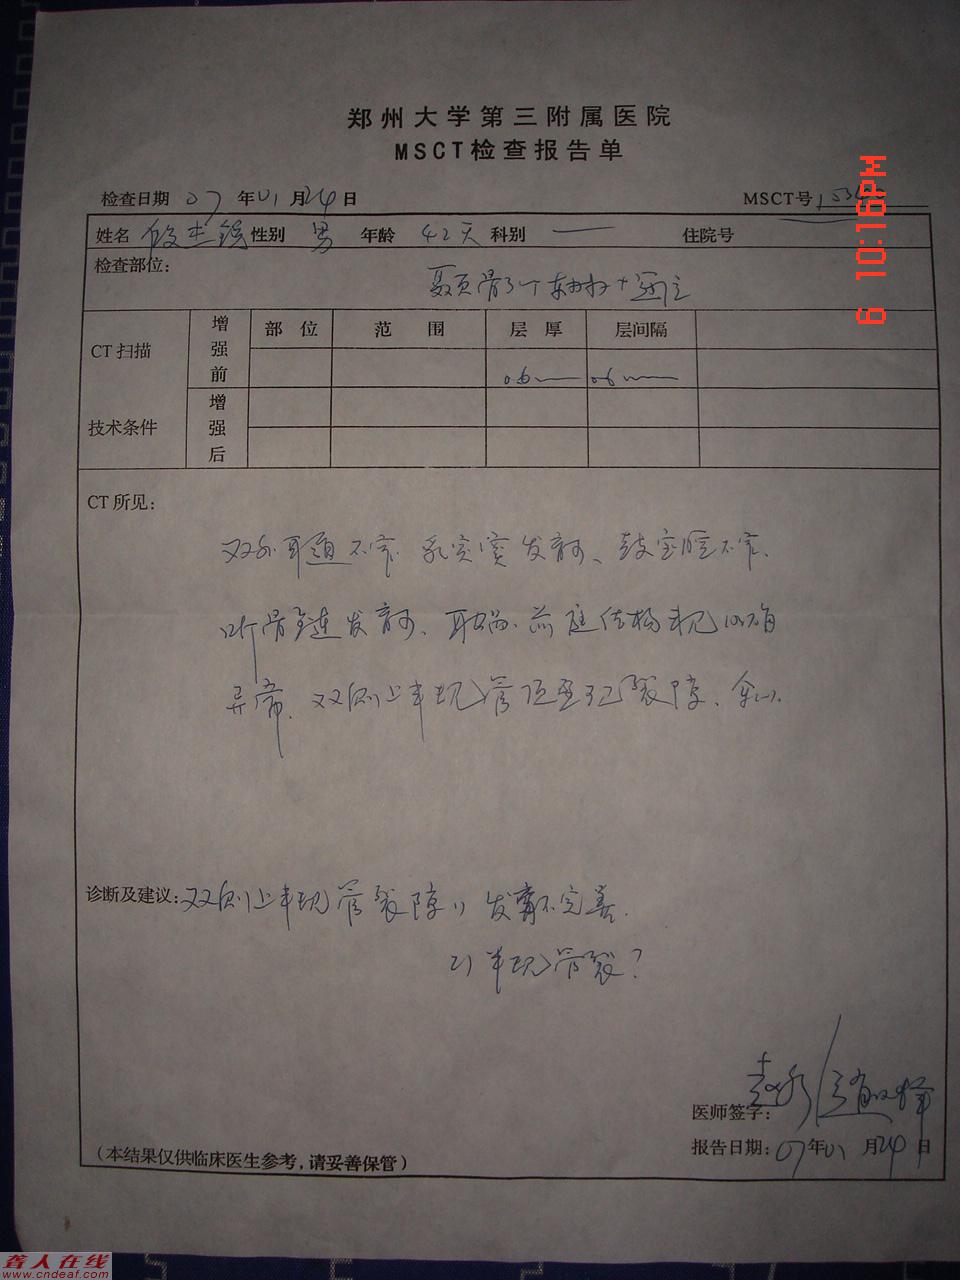 郑州大学第三附属医院
MSCT检查报告单
检查日期 07 年 01 月 24 日 MSCT号
姓名 性别 男 年龄 42天 科别 — 住院号
检查部位: 颞骨
CT 扫描 技术条件
增强前 部 位 范 围 层 厚 层间隔
0.6 0.6
增强后
CT 所见:
双外耳道不窄、乳突窦发育可、鼓室腔不窄、
听骨链发育可、耳蜗、前庭结构未见明确
异常、双侧上半规管顶壁骨裂隙、余(-).
诊断及建议: 双侧上半规管裂隙 1) 发育不完善.
2) 半规管裂?
医师签字:
报告日期: 07 年 01 月 24 日
(本结果仅供临床医生参考,请妥善保管)
6 10:16PM
聋人在线
www.cndeaf.com